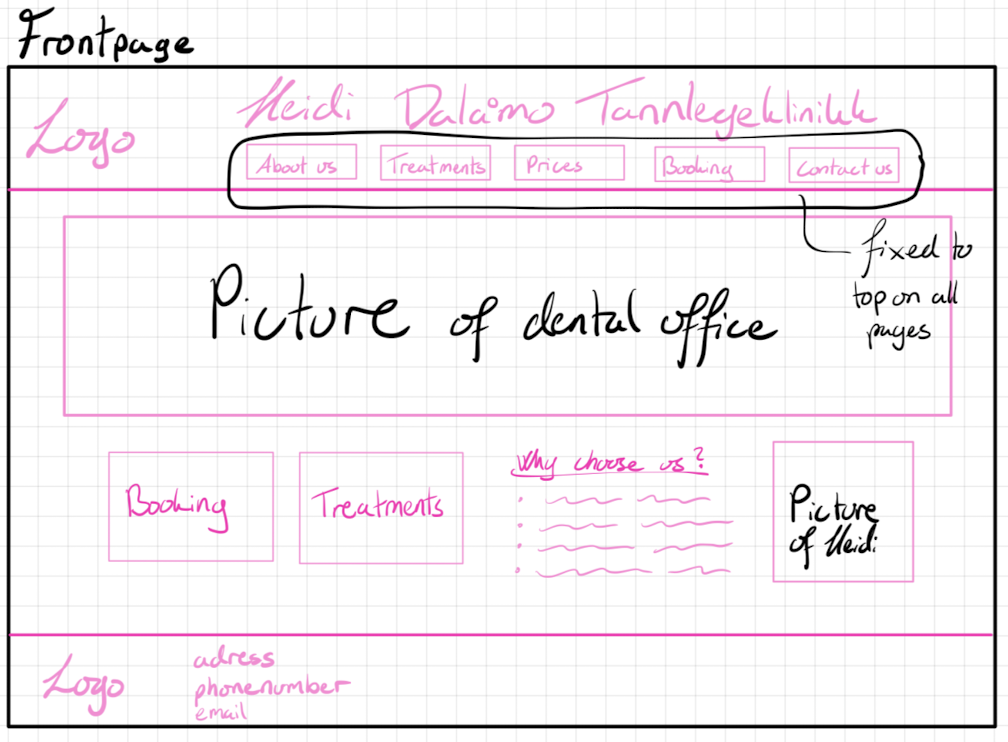 Frontpage
Logo
Heidi Dalåmo Tannlegeklinikk
About us
Treatments
Prices
Booking
Contact us
fixed to
top on all
pages
Picture of dental office
Booking
Treatments
Why choose us?
Picture
of Heidi
Logo
adress
phonenumber
email